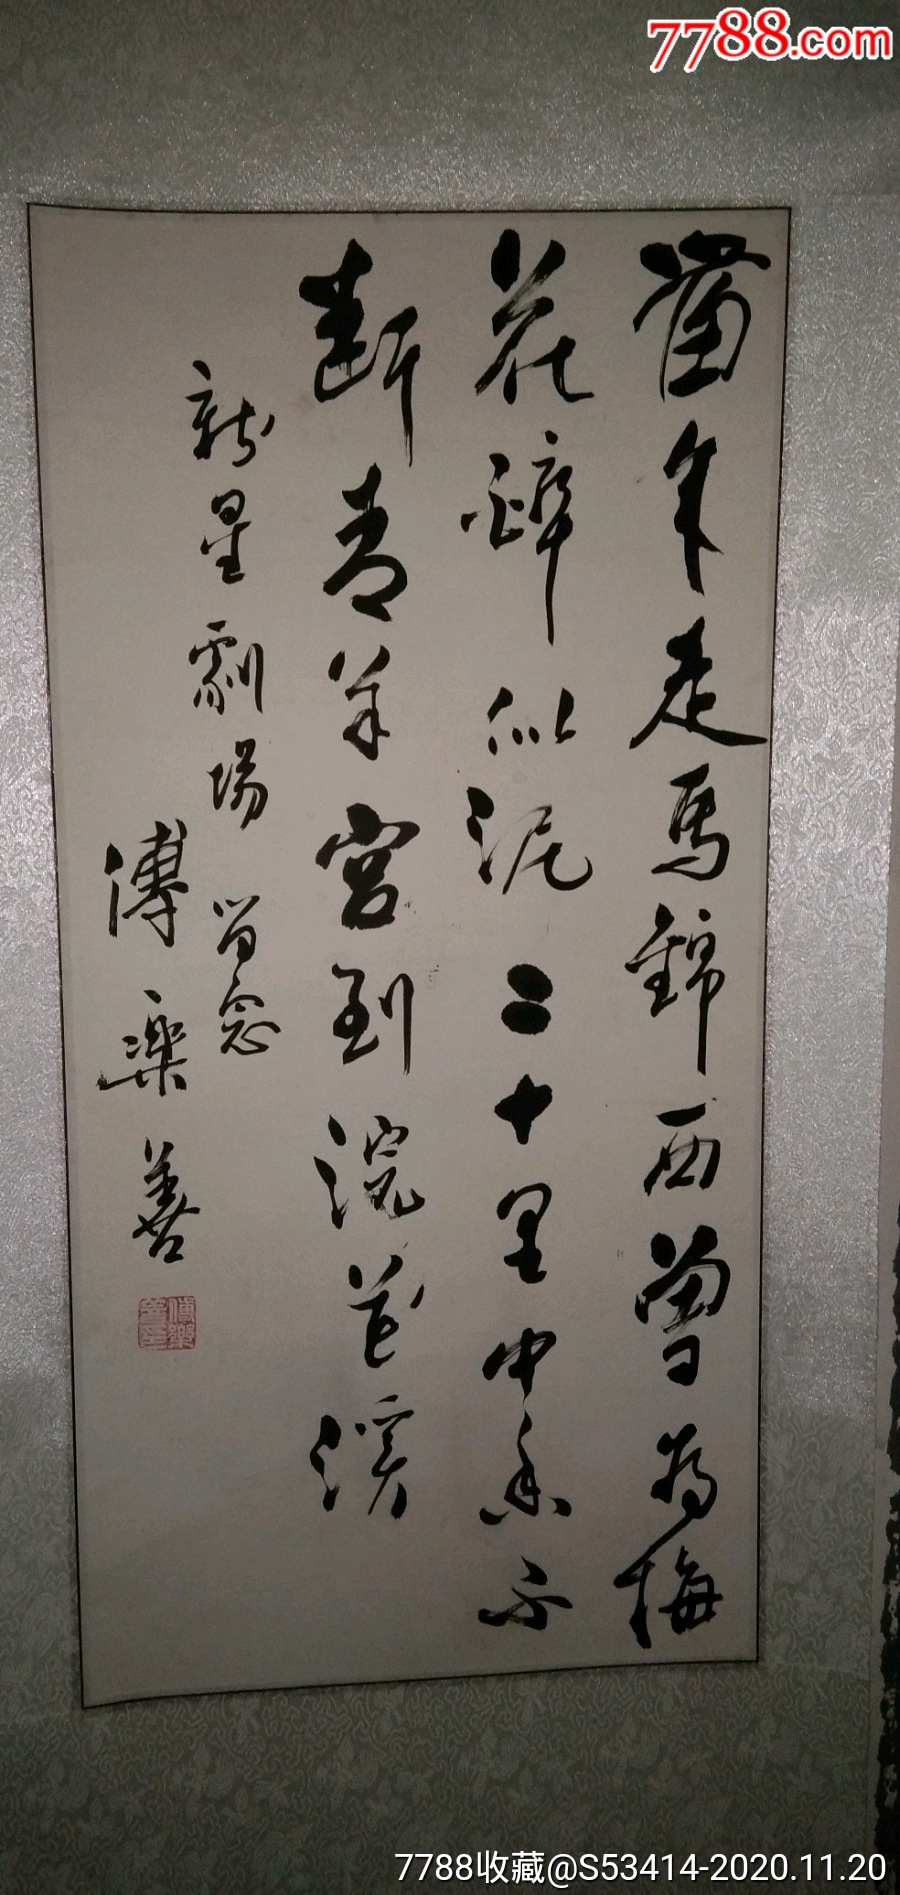 7788.com
當年走馬錦西曽为梅
花醉似泥二十里中香不
断青羊宫到浣花溪
新星劇場留念
傅樂善
7788收藏@S53414-2020.11.20